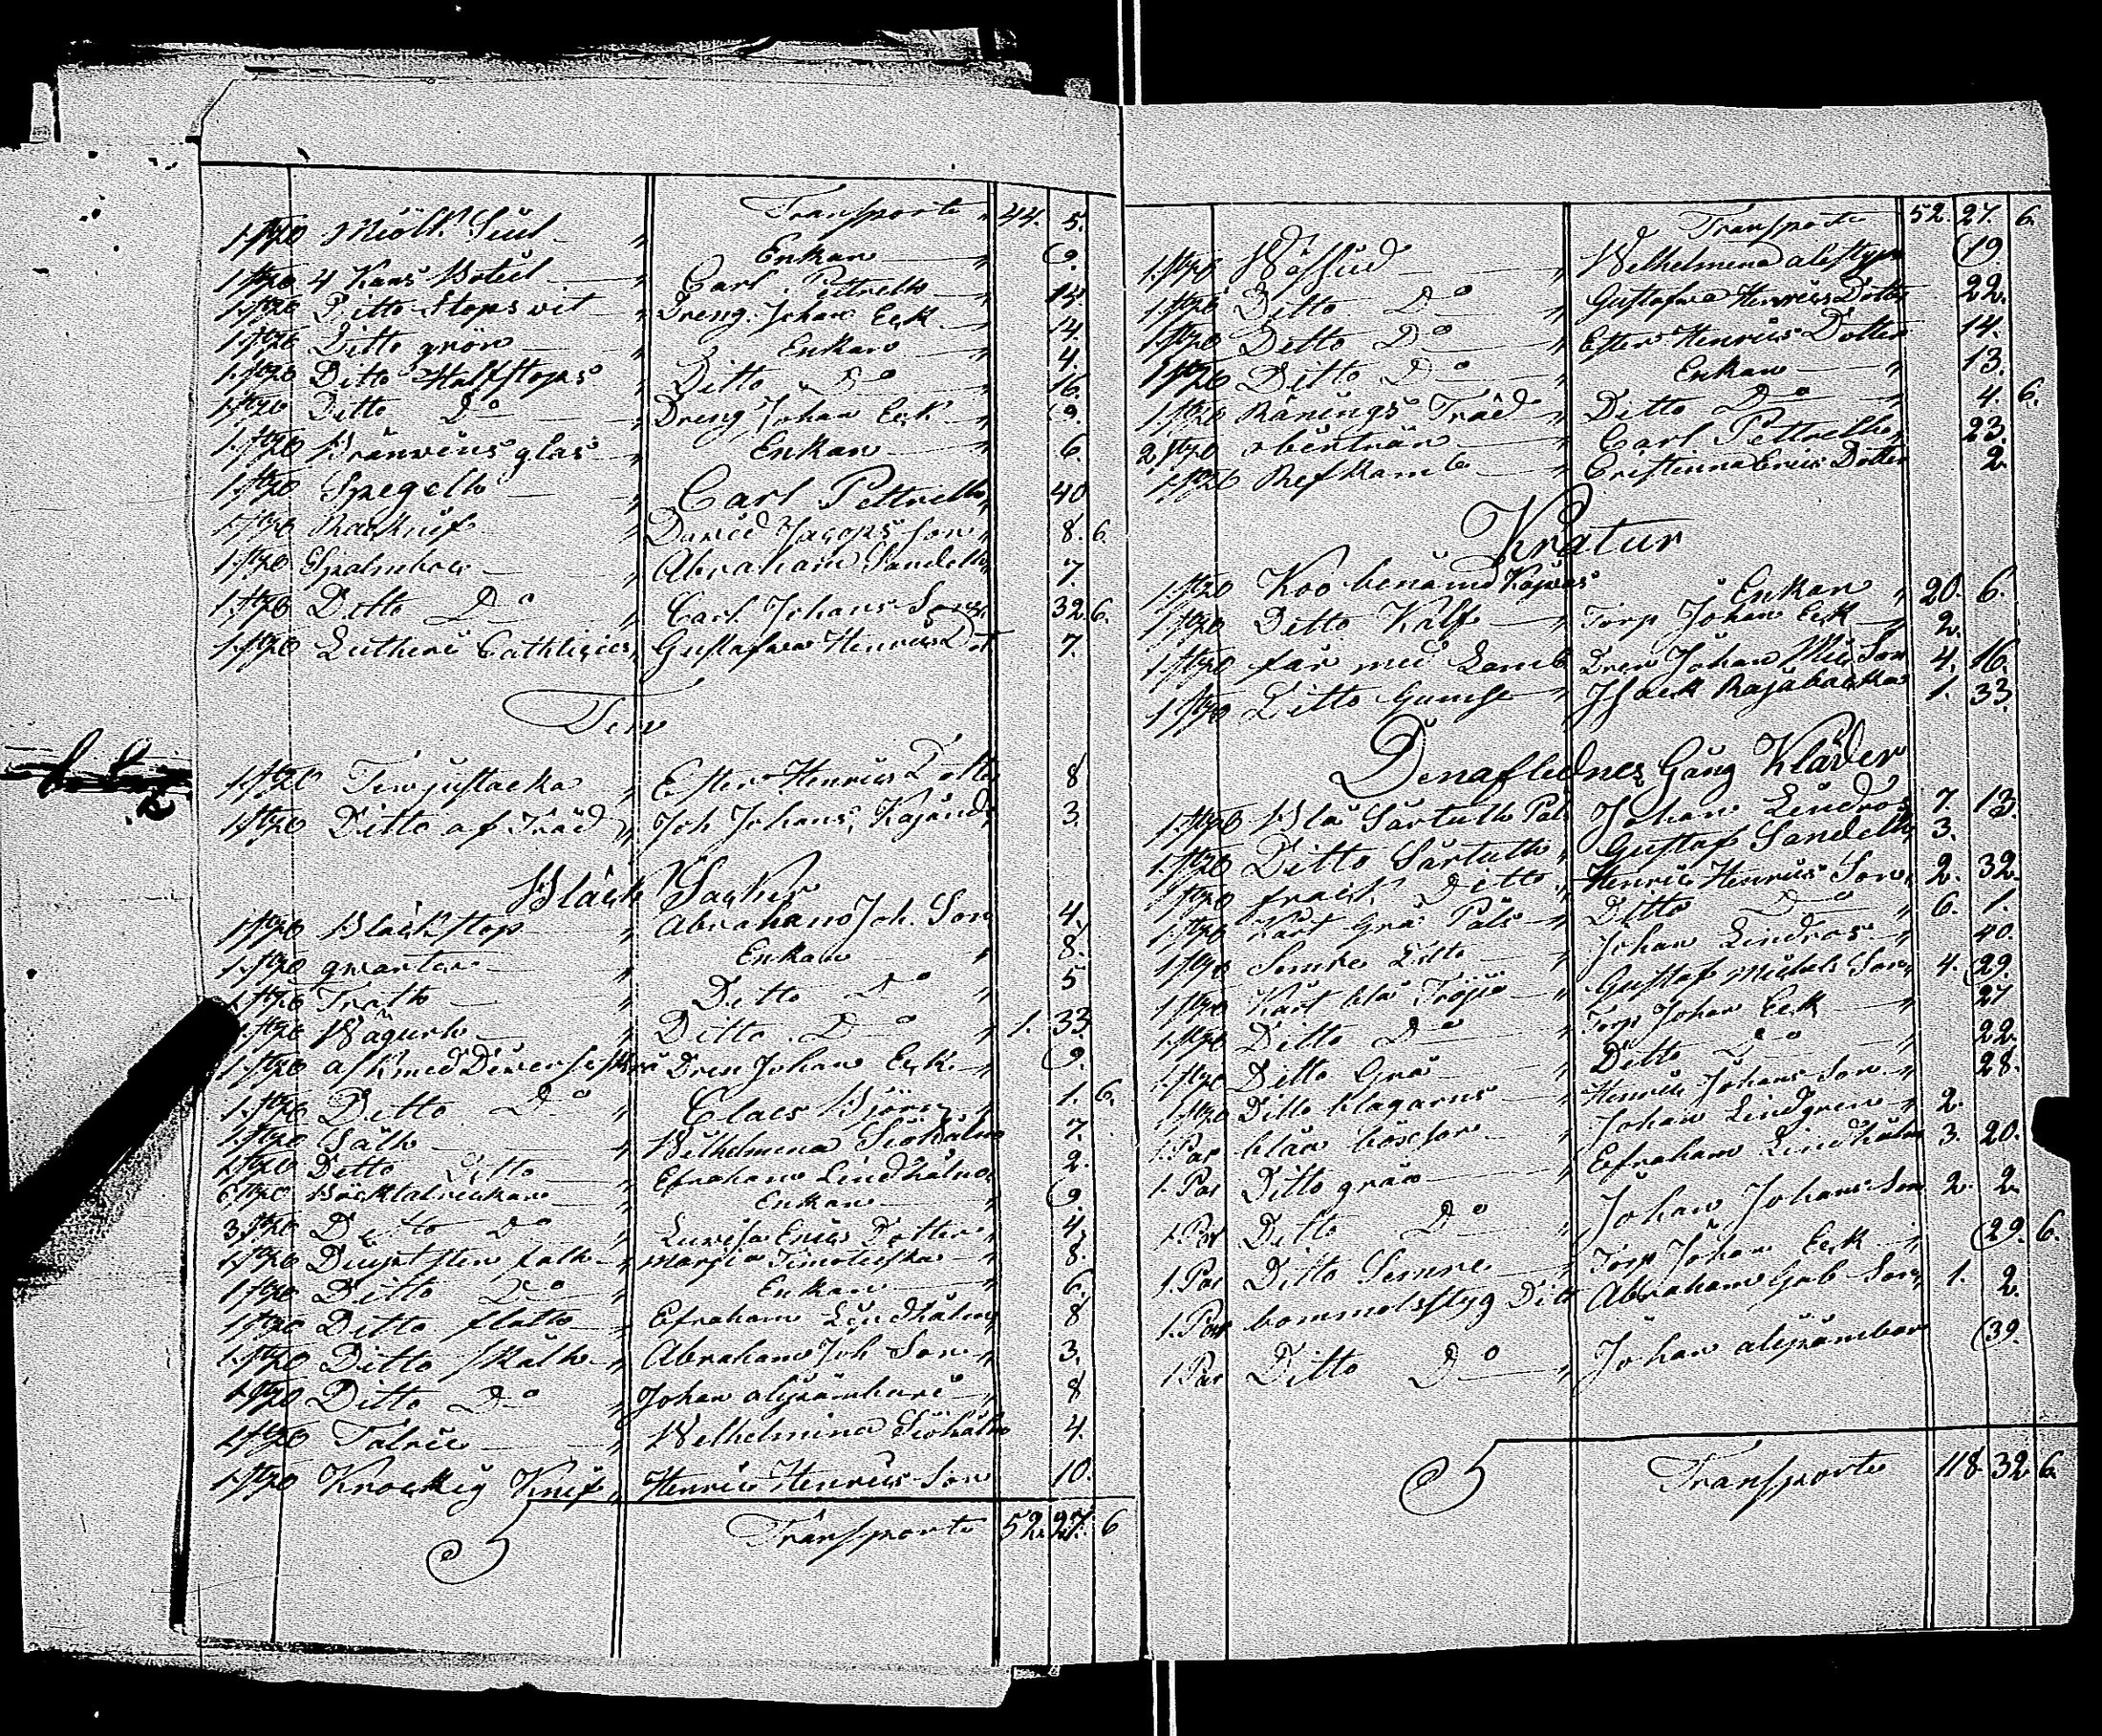 Transporte 44. 5.
1 st:o Miölk Siil Enkan 9.
1 st:o 4 Kans Boteil Carl Pettrell 15.
1 st:o Ditto Stops vit Dreng Johan Eck 14.
1 st:o Ditto grön Enkan 4.
1 st:o Ditto Halfstops Ditto Do 16.
1 st:o Ditto Do Dreng Johan Eck 9.
1 st:o Bränvins glas Enkan 6.
1 st:o Spegell Carl Pettrell 40
1 st:o Rakknif David Jacops Son 8. 6.
1 st:o Spalmbok Abraham Sandell 7.
1 st:o Ditto Do Carl Johans Son 32. 6.
1 st:o Lutheri Cathicies Gustafva Henrics Dot 7.
Ten
1 st:o Tenjustacka Ester Henrics Dotter 8
1 st:o Ditto af Träd Joh Johans, Kajand 3.
Bläck Sacker
1 st:o Bläck stop Abraham Joh. Son 4.
1 st:o qvarter Enkan 8.
1 st:o Tratt Ditto Do 5
1 st:o Wägurk Ditto Do 1. 33
1 st:o ask med Diverse Dren Johan Eck 9.
1 st:o Ditto Do Claes Björn 1. 6.
1 st:o Såll Wilhelmina Siöhålm 7.
1 st:o Ditto Ditto Efraham Lindhålm 2.
6 st:o Böcktalrickar Enkan 9.
3 st:o Ditto Do Lovisa Erics Dotter 4.
1 st:o Diupt sten fatt Marjia Timoteiska 8.
1 st:o Ditto Do Enkan 6.
1 st:o Ditto flatt Efraham Lindhålm 8
1 st:o Ditto skåll Abraham Joh Son 3.
1 st:o Ditto Do Johan 8
1 st:o Talric Wilhelmina Siöhålm 4.
1 st:o Krockig Knif Henric Henrics Son 10.
Transporte 52. 27. 6
Transporte 52. 27. 6.
1 st:o Wäfsüd Wilhelmina 19
1 st:o Ditto Do Gustafva Henrics Dotter 22.
1 st:o Ditto Do Ester Henrics Dotter 14.
1 st:o Ditto Do Enkan 13.
1 st:o Ränings Träd Ditto Do 4. 6.
2 st:o Carl Pettrell 23.
1 st:o Refkam Cristinna Erics Dotter 2
Kratur
1 st:o Koo benämd Enkan 20. 6.
1 st:o Ditto Kalf Torp Johan Eck 2.
1 st:o får med Lamb Dren Johan Mic Son 4. 16.
1 st:o Ditto Gumse Isack Rajabacka 1. 33.
Den aflednes Gång Kläder
1 st:o Blå Särtutt Päls Johan Lindros 7. 13.
1 st:o Ditto Särtutt Gustaf Sandell 3.
1 st:o frack Ditto Henric Henrics Son 2. 32.
1 st:o Kårt Grå Päls Ditto Do 6. 1.
1 st:o Semre Ditto Johan Lindros 40.
1 st:o Kårt blå Tröja Gustaf Michels Son 4. 29.
1 st:o Ditto Do Torp Johan Eck 27
1 st:o Ditto Grå Ditto Do 22.
1 st:o Ditto Henric Johans Son 28.
1. Par blåa böxsor Johan Lindgren 2.
1. Par Ditto gråa Efraham Lindhålm 3. 20.
1. Par Ditto Do Johan Johans Son 2. 2.
1. Par Ditto Semre Torp Johan Eck 29. 6.
1. Par bommolstyg Ditt Abraham Gab Son 1. 2.
1. Par Ditto Do Johan 39.
Transporte 118 32 6.